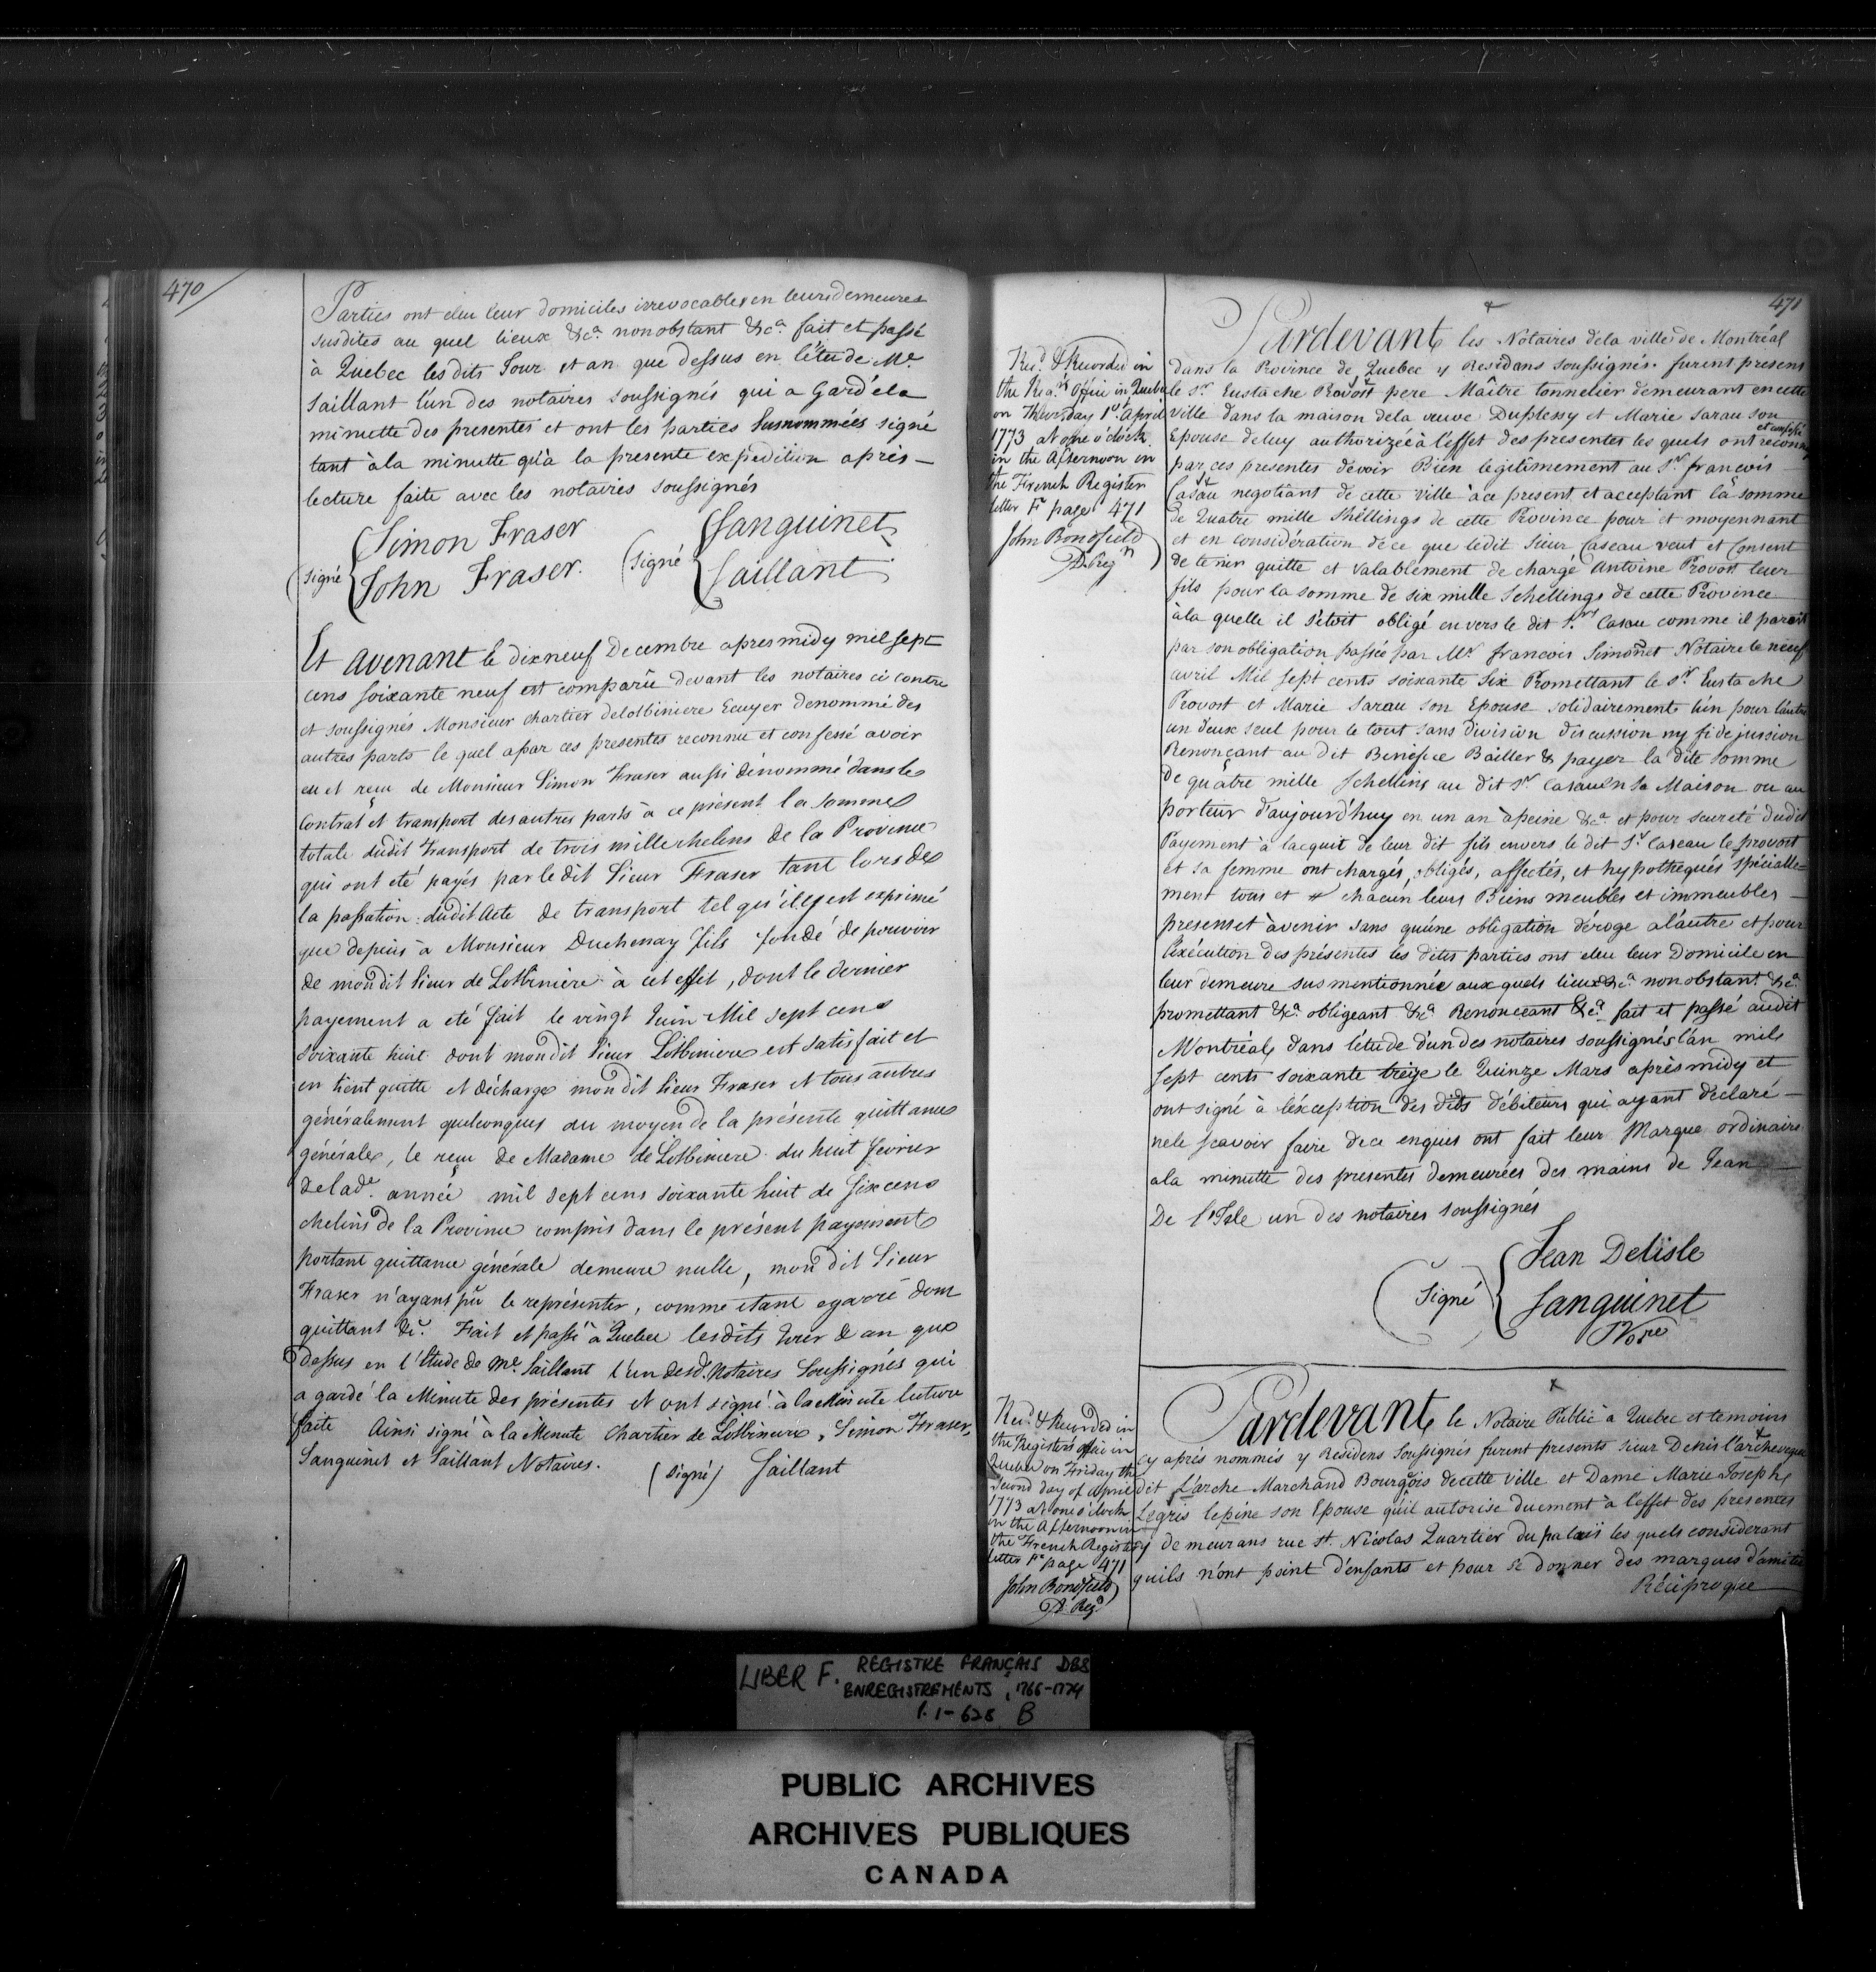 470
Parties ont eleu leur domiciles irrevocables en leurs demeures
susdites au quel lieux &ca. nonobstant &ca. fait et passé
à Quebec les dits Jour et an que dessus en l'étude Me.
Saillant l'un des notaires soussignés qui a Gardé la
minutte des presentes et ont les parties susnommées signé
tant à la minutte qu'à la presente expedition après —
lecture faite avec les notaires soussignés
(Signé { Simon Fraser
John Fraser.
(Signé { Sanguinet
Saillant
Et avenant le dixneuf Decembre apres midy mil sept
cens soixante neuf est comparu devant les notaires ci contre
et soussignés Monsieur chartier delotbiniere Ecuyer denommé des
autres parts le quel a par ces presentes reconnu et confessé avoir
eu et reçu de Monsieur Simon Fraser aussi dénommé dans le
Contrat et transport des autres parts à ce présent la somme
totale dudit transport de trois mille chelins de la Province
qui ont été payés par le dit Sieur Fraser tant lors de
la passation dudit Acte de transport tel qu'il y est exprimé
que depuis à Monsieur Duchesnay fils fondé de pouvoir
de mondit sieur de Lotbiniere à cet effet, dont le dernier
payement a été fait le vingt Juin Mil sept cens
soixante huit dont mondit Sieur Lotbiniere est satisfait et
en tient quitte et décharge mondit sieur Fraser et tous autres
généralement quelconques au moyen de la présente quittance
générale, le reçu de Madame de Lotbiniere du huit fevrier
delade. année mil sept cens soixante huit de six cens
chelins de la Province compris dans le présent payement
portant quittance générale demeure nulle, mon dit Sieur
Fraser n'ayant pû le représenter, comme étant egarré dont
quittant &c. Fait et passé à Quebec lesdits Jour & an que
dessus en l'Etude de Me. Saillant l'un desd. Notaires Soussignés qui
a gardé la Minute des présentes et ont signé à la Minute lecture
faite Ainsi signé à la Minute Chartier de Lotbiniere, Simon Fraser,
Sanguinet et Saillant Notaires.
(signé) Saillant
471
Recd. & Recorded in
the Regrs. Office in Quebec
on Thursday 1st. April
1773 at one o'clock
in the Afternoon in
the French Register
letter F page 471
John Bonsfield
D. Regr
Pardevant les Notaires dela ville de Montréal
dans la Province de Quebec y Residans soussignés. furent presens
le Sr. Eustache Provost pere Maître tonnelier demeurant en cette
ville dans la maison dela veuve Duplessy et Marie Sarau son
Epouse deluy authorizée à l'effet des presentes les quels ont reconnu
et confessé
par ces presentes devoir Bien legitimement au Sr. françois
Casau negotiant de cette ville à ce present et acceptant la somme
de Quatre mille Shellings de cette Province pour et moyennant
et en considération de ce que ledit Sieur Caseau veut et Consent
de tenir quitte et valablement de chargé Antoine Provost leur
fils pour la somme de six mille Schellings de cette Province
àla quelle il s'étoit obligé envers le dit Sr. Casau comme il paroit
par son obligation passée par Mr. francois Simonnet Notaire le neuf
avril Mil sept cents soixante six Promettant le Sr. Eustache
Provost et Marie Sarau son Epouse solidairement l'un pour l'autre
un deux seul pour le tout sans division discussion ny fidejussion
Renonçant au dit Benefice Bailler & payer la dite somme
de quatre mille schellins au dit Sr. Casau en sa Maison ou au
porteur d'aujourd'huy en un an àpeine &ca. et pour seureté dudit
Payement à lacquit de leur dit fils envers le dit Sr. Caseau le provost
et sa femme ont chargés, obligés, affectés, et hypothequés spécialle-
ment tous et chacun leurs Biens meubles et immeubles —
presens et àvenir sans qu'une obligation déroge a l'autre et pour
l'exécution des présentes les dites parties ont eleu leur Domicile en
leur demeure sus mentionnée aux quels lieux &ca. nonobstant &ca.
promettant &ca. obligeant &ca. Renonceant &ca. fait et passé audit
Montréal dans l'étude d'un des notaires soussignés l'an mil
sept cents soixante treize le Quinze Mars après midy et
ont signé à l'exception des dits débiteurs qui ayant déclaré —
nele scavoir faire de ce enquis ont fait leur Marque ordinaire
ala minutte des presentes demeurées des mains de Jean
De l'Isle un des notaires soussignés
(Signé) { Jean Delisle
Sanguinet
Nore
Recd. & Recorded in
the Register's office in
Quebec on Friday the
Second day of April
1773 at one o'clock
in the Afternoon in
the French Register
letter F page 471
John Bonsfield
D. Regr
Pardevant le Notaire Public à Quebec et temoins
cy après nommés y Residens Soussignés furent presents Sieur Denis l'archeveque
dit L'arche Marchand Bourgois decette ville et Dame Marie Josephe
Legris lepine son Epouse qu'il autorise duement à l'effet des presentes
y demeurans rue St. Nicolas Quartier du palais les quels considerant
quils n'ont point d'enfants et pour se donner des marques d'amitié
Réciproque
LIBER F. REGISTRE FRANÇAIS DES
ENREGISTREMENTS, 1766-1774
P. 1-628 B
PUBLIC ARCHIVES
ARCHIVES PUBLIQUES
CANADA